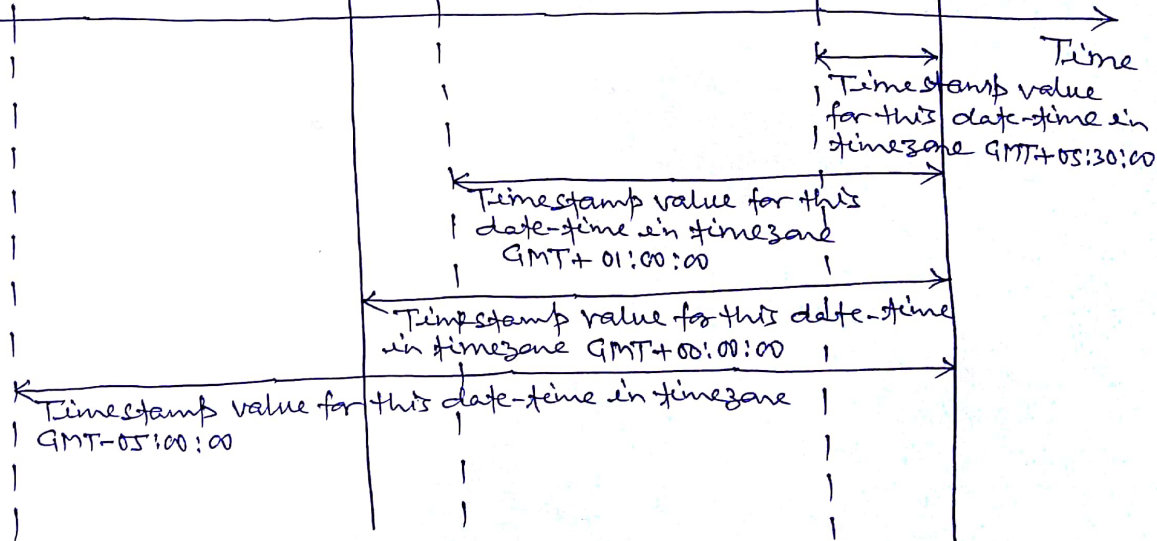 Time
Timestamp value
for this date-time in
timezone GMT+05:30:00
Timestamp value for this
date-time in timezone
GMT+01:00:00
Timestamp value for this date-time
in timezone GMT+00:00:00
Timestamp value for this date-time in timezone
GMT-05:00:00